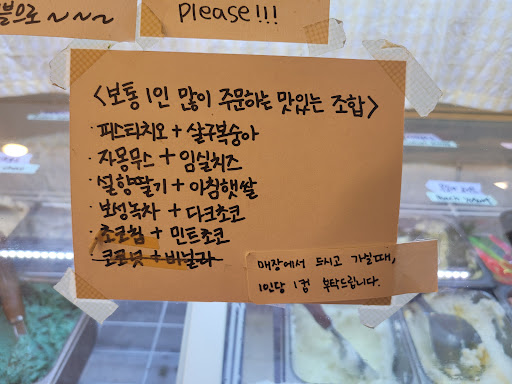 블으로~~~
please!!!
<보통 1인 많이 주문하는 맛있는 조합>
· 피스타치오 + 살구복숭아
· 자몽무스 + 임실치즈
· 설향딸기 + 아침햇쌀
· 보성녹차 + 다크초코
· 초코칩 + 민트초코
· 코코넛 + 바닐라
매장에서 드시고 가실때,
1인당 1컵 부탁드립니다.